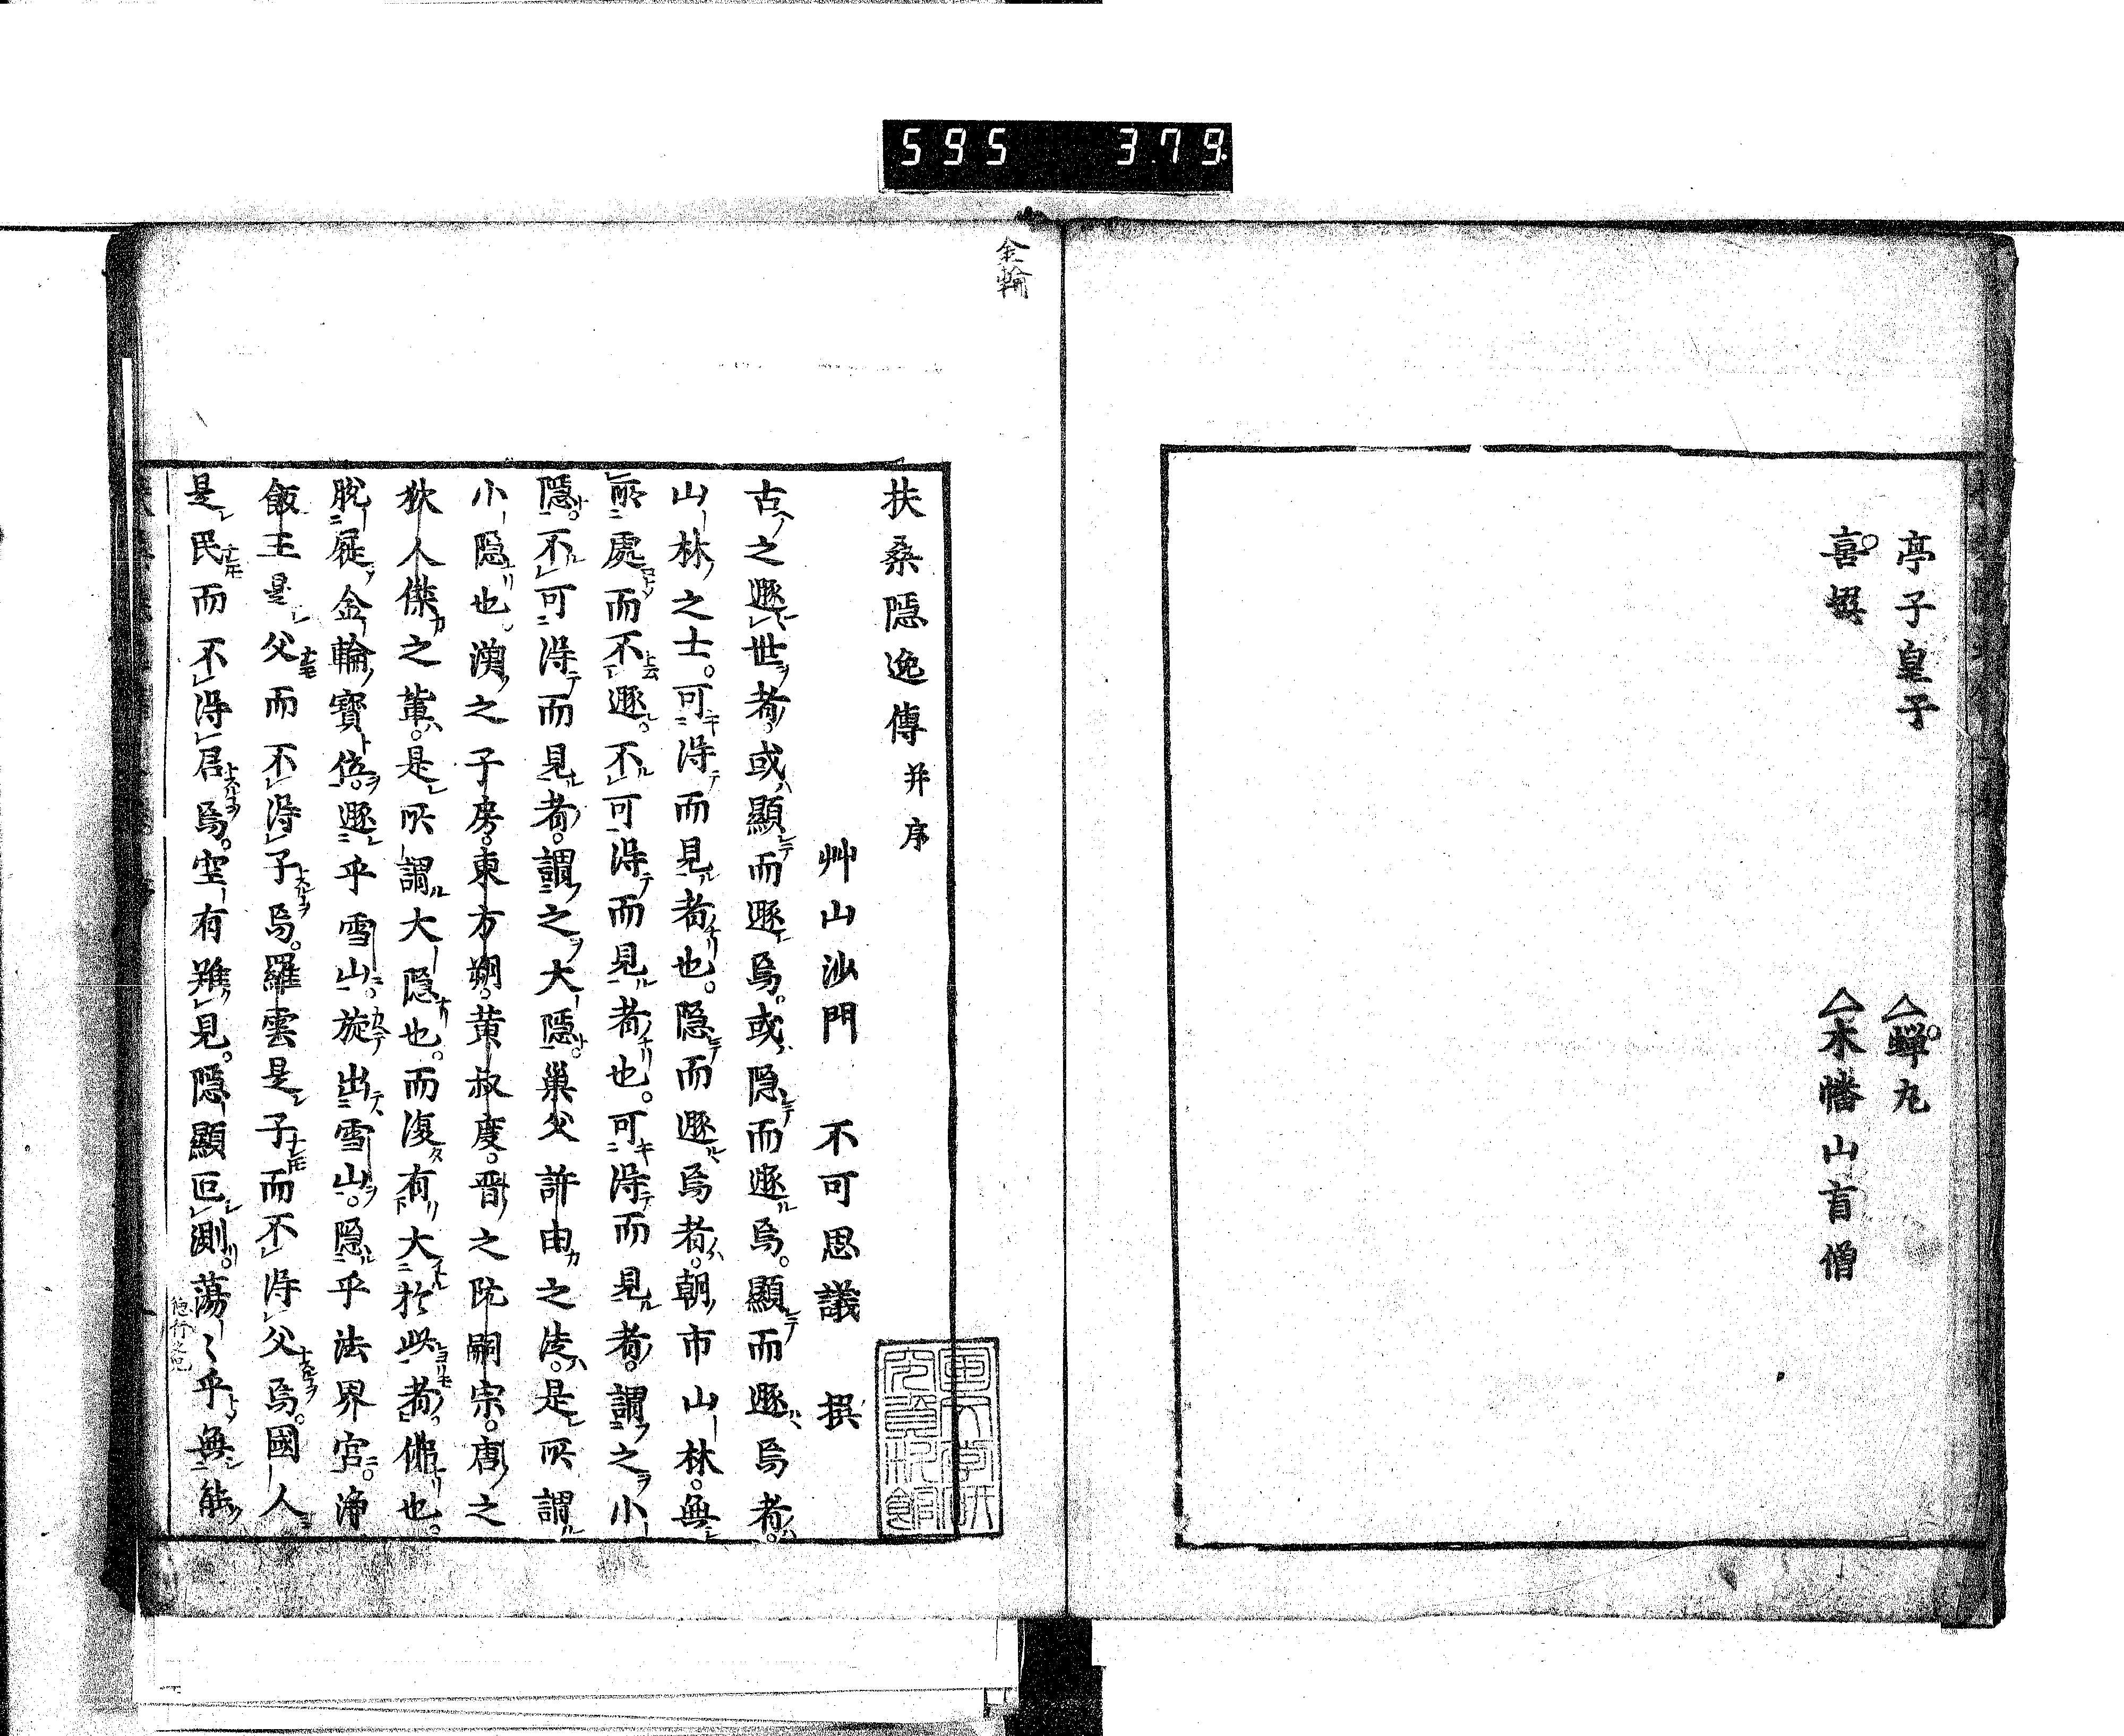 595 379
亭子皇子
蟬丸
喜撰
木幡山盲僧
金輪
扶桑隠逸傳并序
艸山沙門 不可思議 撰
古之遯世者或顯而遯焉或隠而遯焉顯而遯焉者
山林之士可得而見者也隠而遯焉者朝市山林無
所處而不遯不可得而見者也可得而見者謂之小
隠不可得而見者謂之大隠巢父許由之徒是所謂
小隠也漢之子房東方朔黄叔度晋之阮嗣宗唐之
狄人傑之輩是所謂大隠也而復有大於此者佛也
脱屣金輪寶位遯乎雪山旋出雪山隠乎法界宮淨
飯王是父而不得子焉羅雲是子而不得父焉國人
是民而不得君焉空有難見隠顯叵測蕩〻乎無能